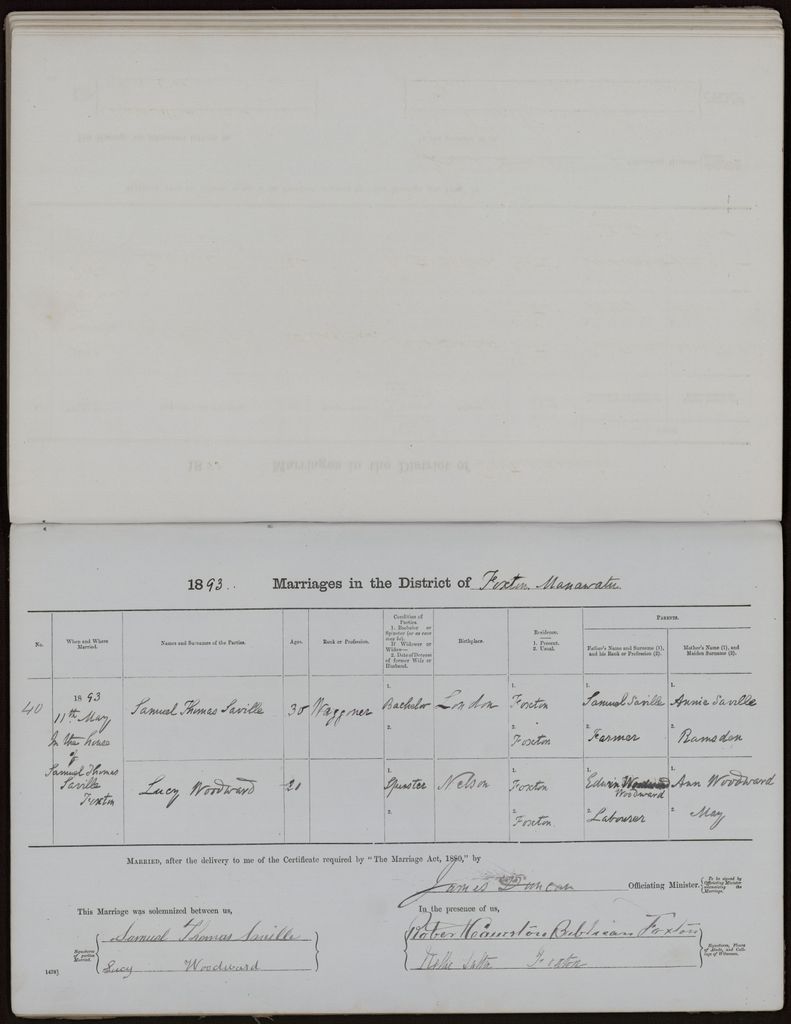 1893. Marriages in the District of Foxton Manawatu
No. When and Where Married. Names and Surnames of the Parties. Ages. Rank or Profession. Condition of Parties. 1. Bachelor or Spinster (or as case may be). If Widower or Widow— 2. Date of Decease of former Wife or Husband. Birthplace. Residence. 1. Present. 2. Usual. PARENTS. Father's Name and Surname (1), and his Rank or Profession (2). Mother's Name (1), and Maiden Surname (2).
40 1893 11th May In the house of Samuel Thomas Saville Foxton
Samuel Thomas Saville 30 Waggoner 1. Bachelor 2. London 1. Foxton 2. Foxton 1. Samuel Saville 2. Farmer 1. Annie Saville 2. Ramsden
Lucy Woodward 20 1. Spinster 2. Nelson 1. Foxton 2. Foxton 1. Edwin Woodward 2. Labourer 1. Ann Woodward 2. May
MARRIED, after the delivery to me of the Certificate required by "The Marriage Act, 1880," by
James Duncan Officiating Minister. {To be signed by Officiating Minister solemnizing the Marriage.
This Marriage was solemnized between us,
Signatures of parties Married. Samuel Thomas Saville
Lucy Woodward
In the presence of us,
Robert Publican Foxton
Foxton
Signatures, Places of Abode, and Callings of Witnesses.